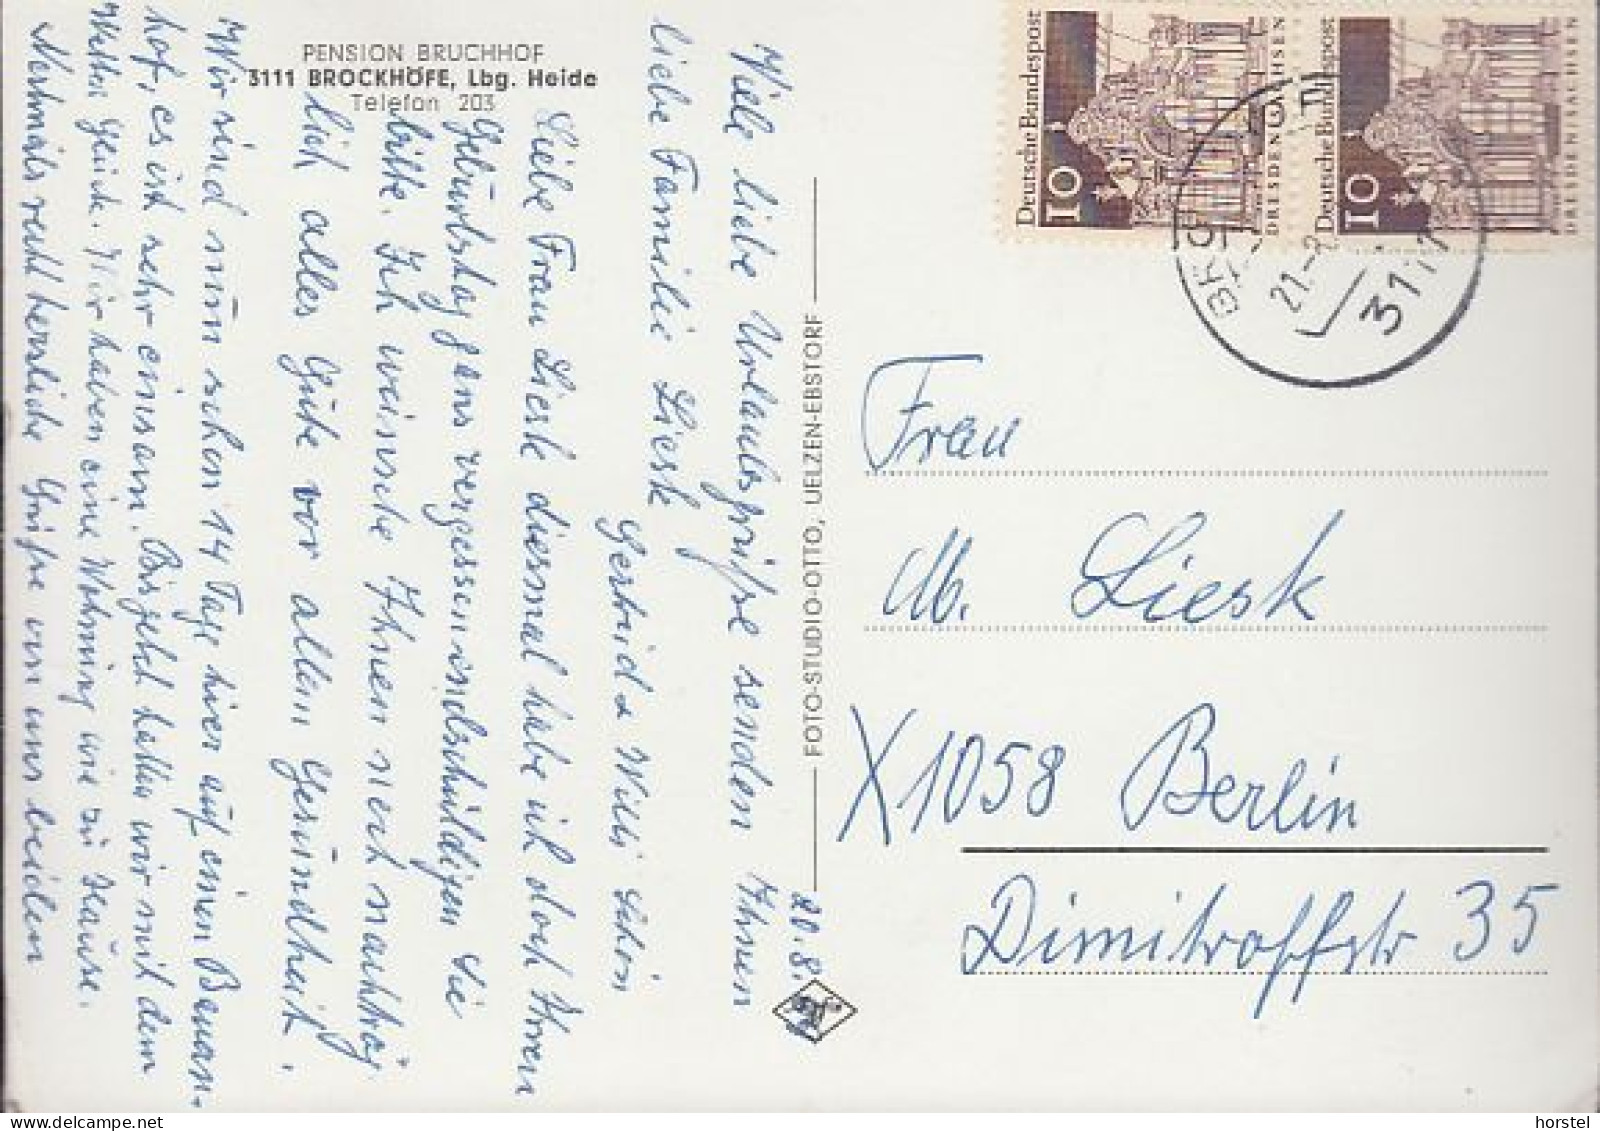 PENSION BRUCHHOF
3111 BROCKHÖFE, Lbg. Heide
Telefon 203
20.8.
Viele liebe Urlaubsgrüße senden Ihnen
liebe Familie Liesk
Gertrid u Willi Schön
Liebe Frau Liesk diesmal habe ich doch Ihren
Geburtstag ganz vergessen entschuldigen Sie
bitte. Ich wünsche Ihnen noch nachträg
lich alles Gute vor allen Gesundheit.
Wir sind nun schon 14 Tage hier auf einen Bauern-
hof, es ist sehr einsam. Bis jetzt hatten wir mit dem
Wetter Glück. Wir haben eine Wohnung wie zu Hause.
Nochmals recht herzliche Grüße von uns beiden
FOTO-STUDIO-OTTO, UELZEN-EBSTORF
Deutsche Bundespost
10
DRESDEN/SACHSEN
Deutsche Bundespost
10
DRESDEN/SACHSEN
21.-8
311
Frau
M. Liesk
X1058 Berlin
Dimitroffstr 35
horstel